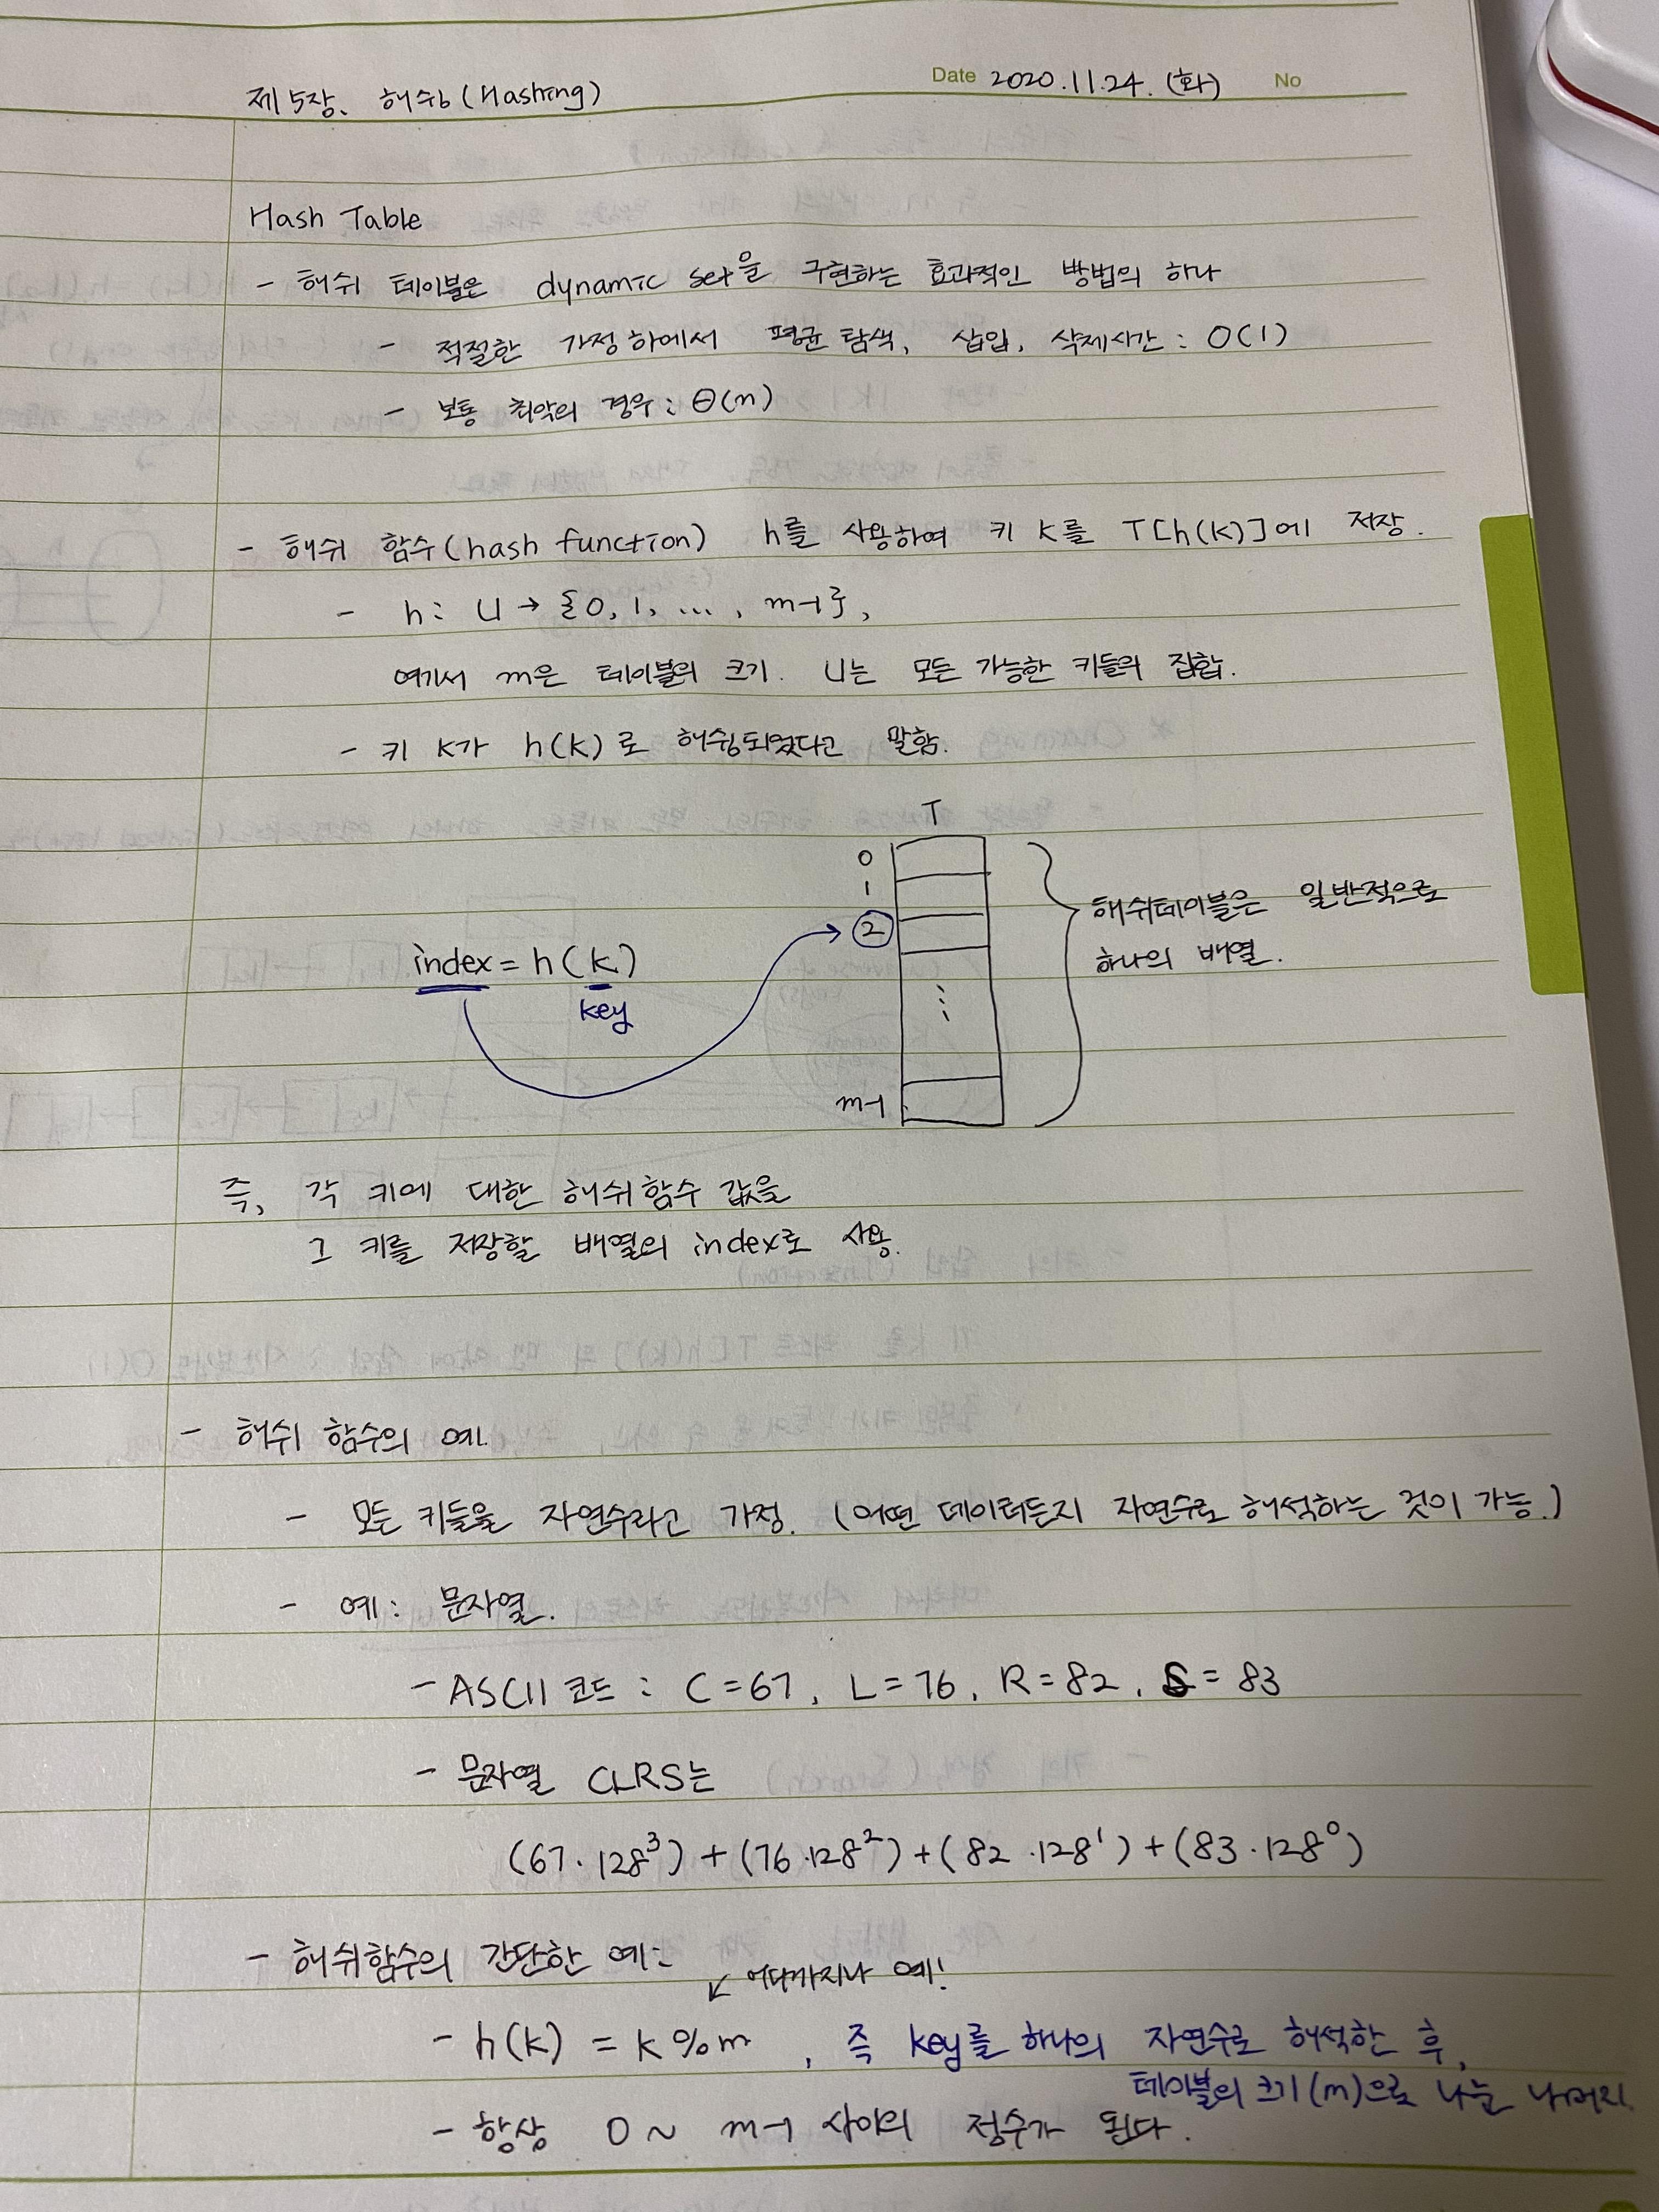 제5장. 해슁 (Hashing)
Date 2020.11.24. (화) No
Hash Table
- 해쉬 테이블은 dynamic set을 구현하는 효과적인 방법의 하나
- 적절한 가정 하에서 평균 탐색, 삽입, 삭제시간 : O(1)
- 보통 최악의 경우 : Θ(n)
- 해쉬 함수(hash function) h를 사용하여 키 k를 T[h(k)]에 저장.
- h : U → {0, 1, ..., m-1},
여기서 m은 테이블의 크기. U는 모든 가능한 키들의 집합.
- 키 k가 h(k)로 해슁되었다고 말함.
T
0
1
2
⋮
m-1
해쉬테이블은 일반적으로
하나의 배열.
index = h(k)
key
즉, 각 키에 대한 해쉬함수 값을
그 키를 저장할 배열의 index로 사용.
- 해쉬 함수의 예.
- 모든 키들을 자연수라고 가정. (어떤 데이터든지 자연수로 해석하는 것이 가능.)
- 예 : 문자열.
- ASCII 코드 : C = 67, L = 76, R = 82, S = 83
- 문자열 CLRS는
(67·128³) + (76·128²) + (82·128¹) + (83·128⁰)
- 해쉬함수의 간단한 예 :
↙ 어디까지나 예!
- h(k) = k % m , 즉 key를 하나의 자연수로 해석한 후,
테이블의 크기(m)으로 나눈 나머지.
- 항상 0 ~ m-1 사이의 정수가 된다.